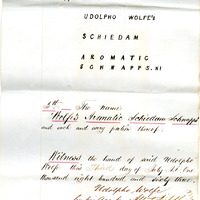 UDOLPHO WOLFE'S
SCHIEDAM
AROMATIC
SCHNAPPS.
The Name
"Wolfe's Aromatic Schiedam Schnapps"
and each and every part thereof.
Witness the hand of said Udolpho
Wolfe this Third day of July A.D. One
thousand eight hundred and sixty three.
Udolpho Wolfe